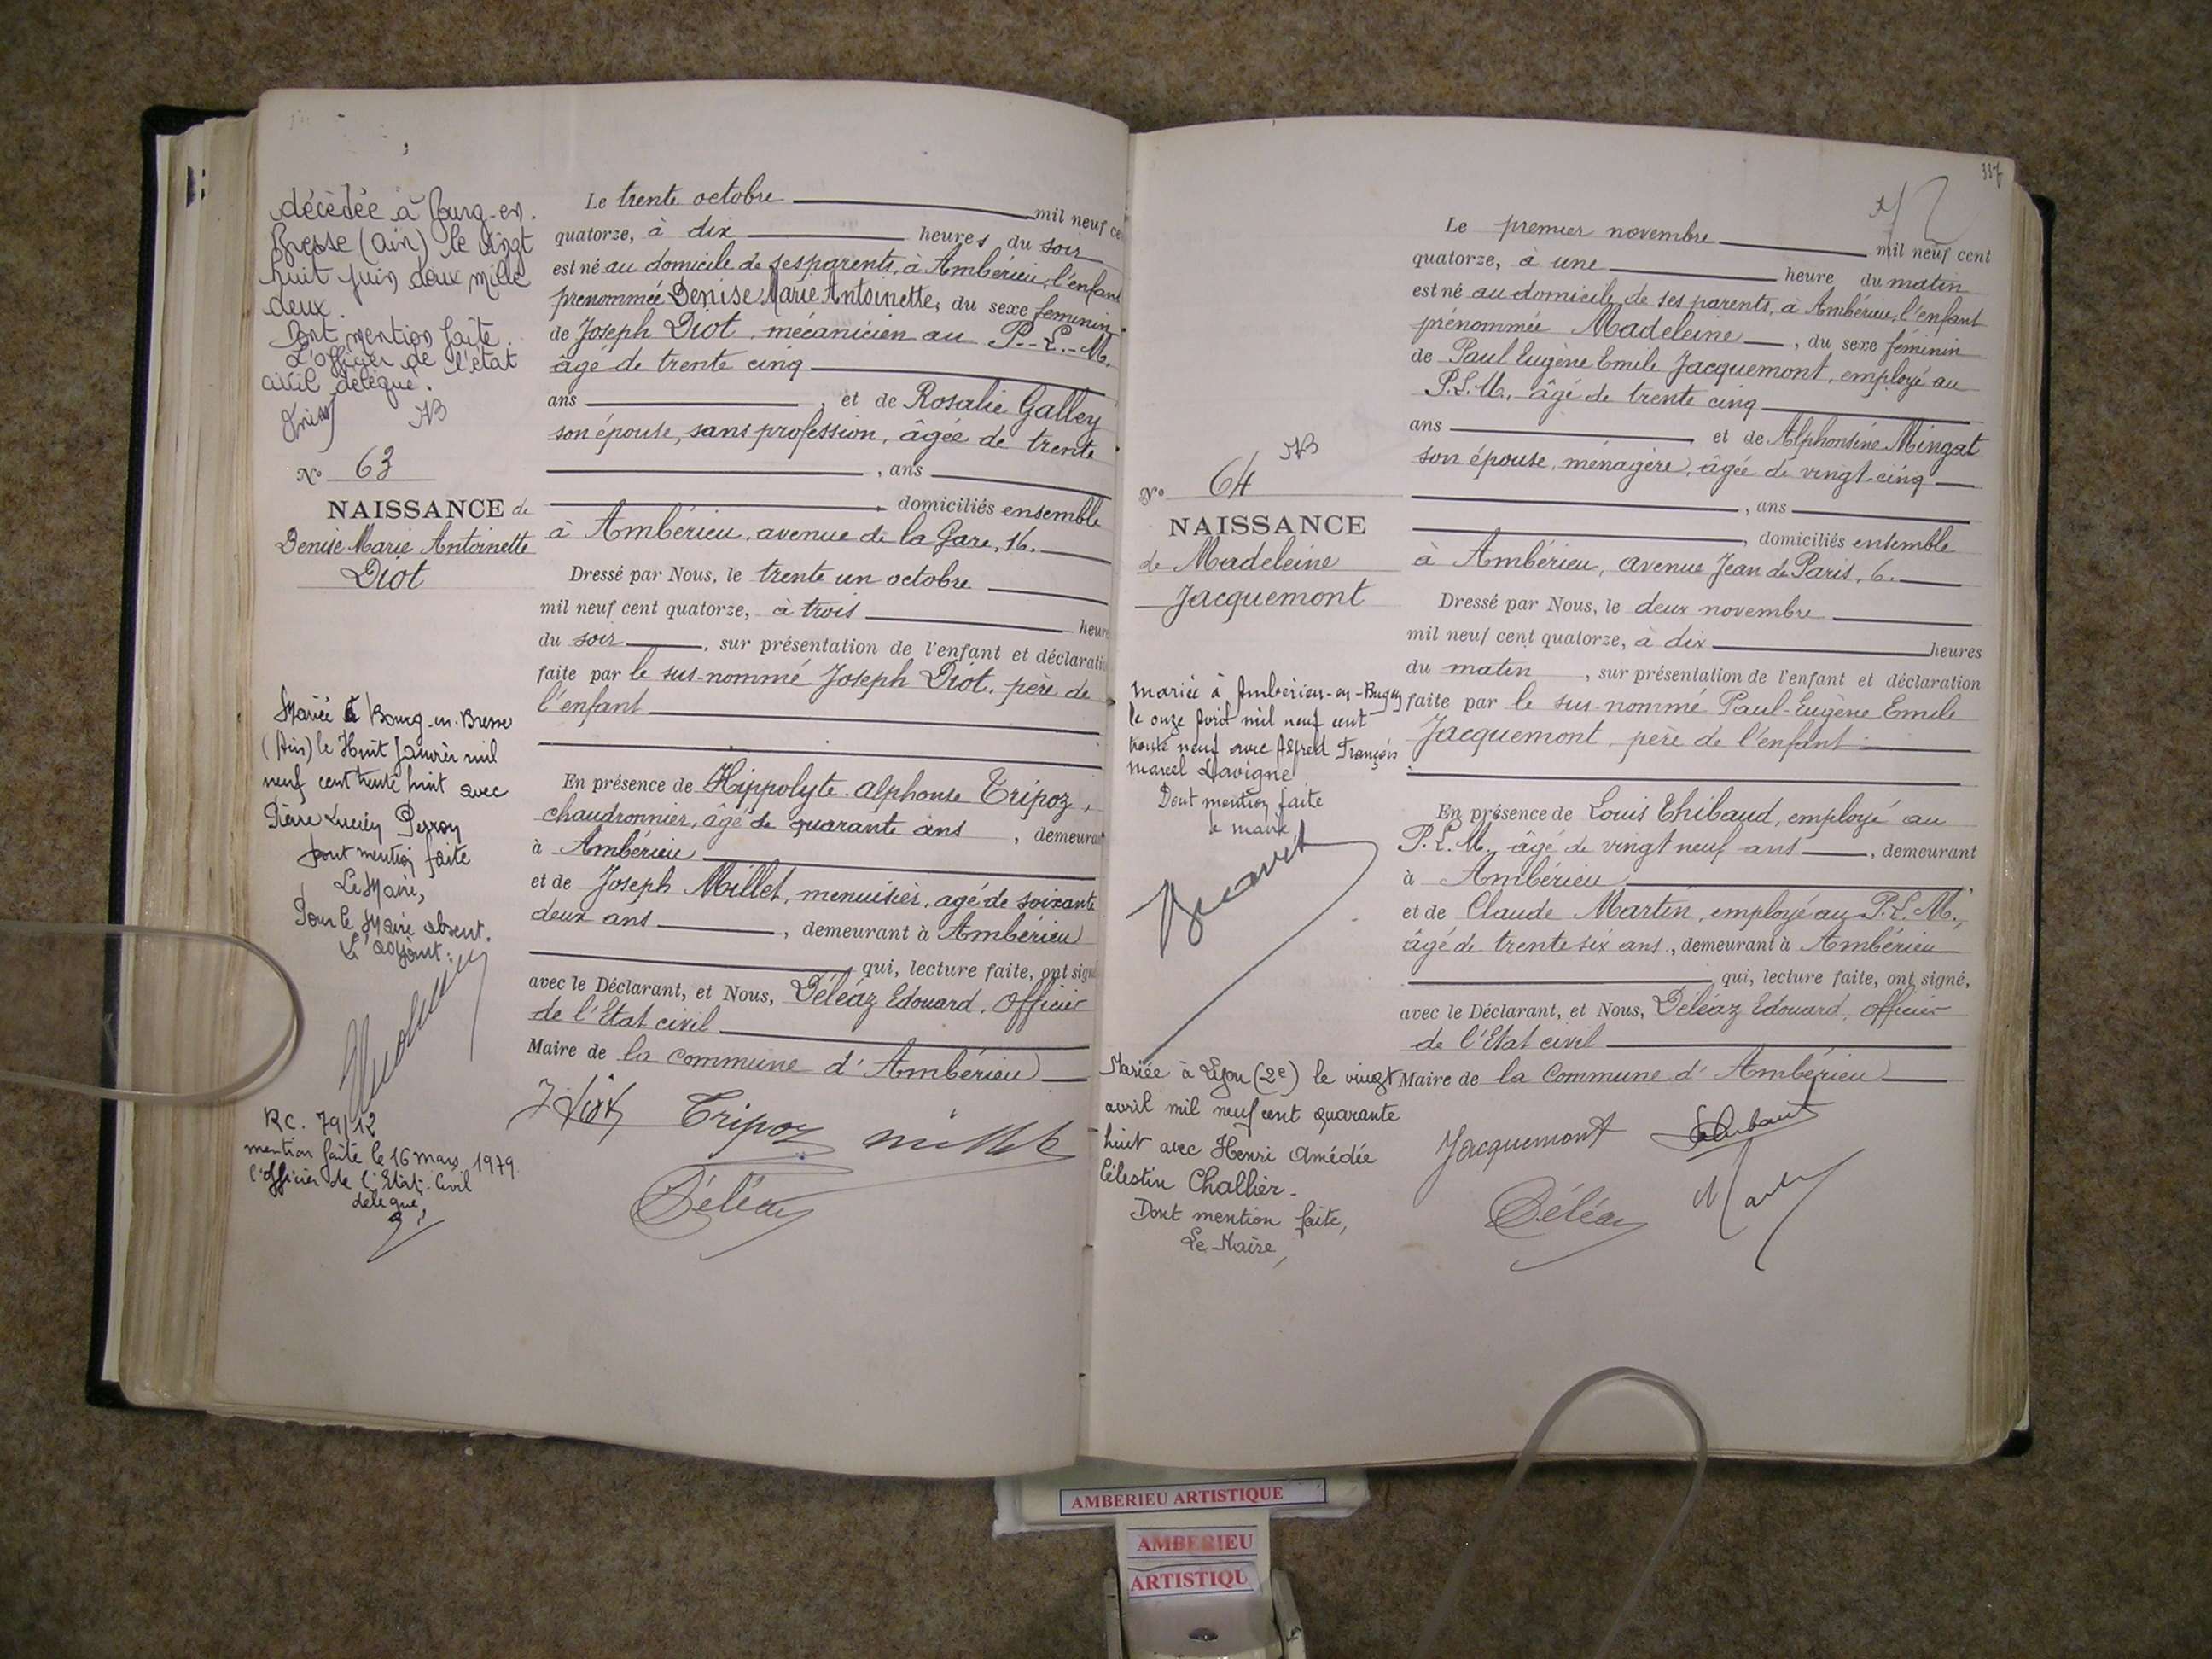 décédée à Bourg-en-
Bresse (Ain) le vingt
huit juin deux mille
deux.
Dont mention faite.
L'officier de l'état
civil délégué.
N° 63
NAISSANCE de
Denise Marie Antoinette
Diot
Mariée à Bourg-en-Bresse
(Ain) le Huit Janvier mil
neuf cent trente huit avec
Pierre Lucien Perron
Dont mention faite
Le Maire,
Pour le Maire absent.
L'adjoint:
RC. 79/12
mention faite le 16 mars 1979.
l'officier de l'Etat-Civil
délégué,
Le trente octobre mil neuf ce
quatorze, à dix heures du soir
est né au domicile de ses parents, à Ambérieu, l'enfant
prénommée Denise Marie Antoinette, du sexe féminin
de Joseph Diot, mécanicien au P.-L.-M.
âgé de trente cinq
ans , et de Rosalie Galley
son épouse, sans profession, âgée de trente
, ans
domiciliés ensemble
à Ambérieu, avenue de la Gare, 16.
Dressé par Nous, le trente un octobre
mil neuf cent quatorze, à trois heure
du soir , sur présentation de l'enfant et déclarati
faite par le sus-nommé Joseph Diot, père de
l'enfant
En présence de Hippolyte Alphonse Tripoz,
chaudronnier, âgé de quarante ans , demeurant
à Ambérieu
et de Joseph Millet, menuisier, agé de soixante
deux ans , demeurant à Ambérieu
qui, lecture faite, ont signé
avec le Déclarant, et Nous, Déléaz Edouard, Officier
de l'Etat civil
Maire de la commune d'Ambérieu
J Diot Tripoz Millet
Déléaz
337
N° 64
NAISSANCE
de Madeleine
Jacquemont
Mariée à Ambérieu-en-Bugey
le onze Avril mil neuf cent
trente neuf avec Alfred François
Marcel Lavigne
Dont mention faite
le maire,
Mariée à Lyon (2e) le vingt
avril mil neuf cent quarante
huit avec Henri Amédée
Célestin Challier.
Dont mention faite,
Le Maire,
Le premier novembre mil neuf cent
quatorze, à une heure du matin
est né au domicile de ses parents, à Ambérieu, l'enfant
prénommée Madeleine , du sexe féminin
de Paul Eugène Emile Jacquemont, employé au
P.L.M., âgé de trente cinq
ans et de Alphonsine Mingat
son épouse, ménagère, âgée de vingt-cinq
, ans
, domiciliés ensemble
à Ambérieu, avenue Jean de Paris, 6.
Dressé par Nous, le deux novembre
mil neuf cent quatorze, à dix heures
du matin , sur présentation de l'enfant et déclaration
faite par le sus-nommé Paul-Eugène Emile
Jacquemont, père de l'enfant
En présence de Louis Thibaud, employé au
P.L.M., âgé de vingt neuf ans , demeurant
à Ambérieu
et de Claude Martin, employé au P.L.M.,
âgé de trente six ans , demeurant à Ambérieu
qui, lecture faite, ont signé,
avec le Déclarant, et Nous, Déléaz Edouard, Officier
de l'Etat civil
Maire de la commune d'Ambérieu
Jacquemont
Déléaz
AMBERIEU ARTISTIQUE
AMBERIEU
ARTISTIQU